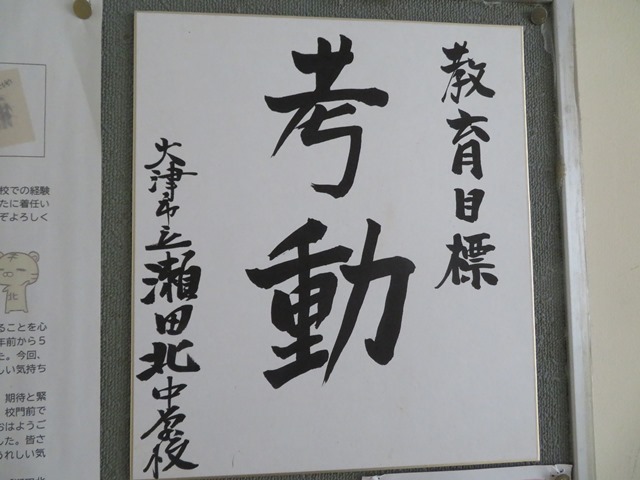 教育目標
考動
大津市立瀬田北中学校
校での経験
たに着任い
ぞよろしく
北
ることを心
年前から５
た。今回、
しい気持ち
期待と緊
校門前で
おはようご
した。皆さ
うれしい気